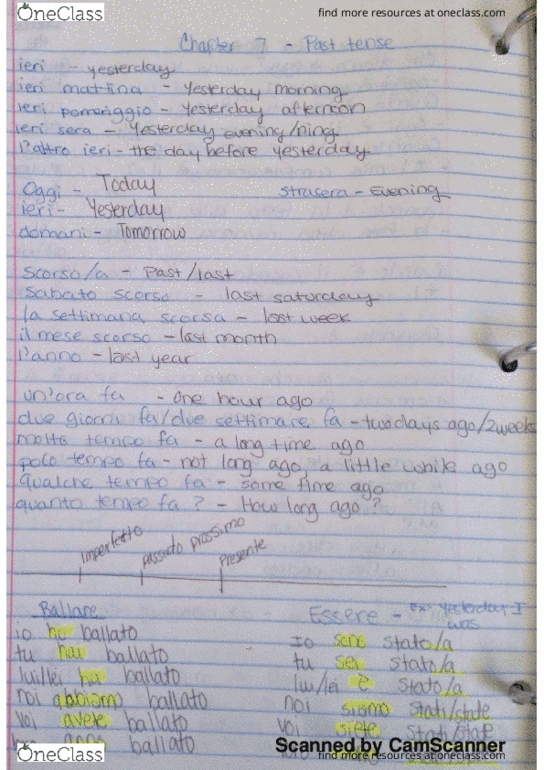 OneClass
find more resources at oneclass.com
Chapter 7 - Past tense
ieri - yesterday
ieri mattina - yesterday morning
ieri pomeriggio - yesterday afternoon
ieri sera - Yesterday evening/ning
l'altro ieri - the day before yesterday
Oggi - Today
strasera - Evening
ieri - Yesterday
domani - Tomorrow
scorso/a - Past/last
sabato scorso - last saturday
la settimana scorsa - last week
il mese scorso - last month
l'anno - last year
un'ora fa - one hour ago
due giorni fa/due settimane fa - two days ago/2weeks
molto tempo fa - a long time ago
poco tempo fa - not long ago, a little while ago
qualche tempo fa - some time ago
quanto tempo fa? - How long ago?
imperfetto
passato prossimo
presente
Ballare
io ho ballato
tu hai ballato
lui/lei ha ballato
noi abbiamo ballato
voi avete ballato
ballato
Essere - Ex: Yesterday I was
Io sono stato/a
tu sei stato/a
lui/lei è stato/a
noi siamo stati/state
voi siete stati/state
OneClass
Scanned by CamScanner
find more resources at oneclass.com